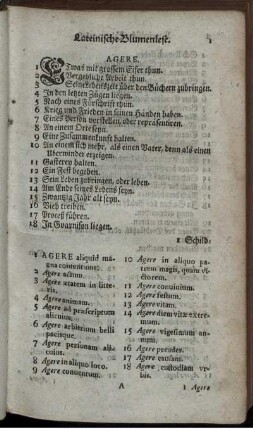 Lateinische Blumenlese. 1
AGERE.
1 Etwas mit grossem Eifer thun.
2 Vergebliche Arbeit thun.
3 Seine Lebenszeit über den Büchern zubringen.
4 In den letzten Zügen liegen.
5 Nach eines Fürschrift thun.
6 Krieg und Frieden in seinen Händen haben.
7 Eines Person vorstellen, oder repræsentiren.
8 An einem Ort seyn.
9 Eine Zusammenkunft halten.
10 An einem sich mehr, als einen Vater, denn als einen
Uberwinder erzeigen.
11 Gasterey halten.
12 Ein Fest begehen.
13 Sein Leben zubringen, oder leben.
14 Am Ende seines Lebens seyn.
15 Zwantzig Jahr alt seyn.
16 Vieh treiben.
17 Proceß führen.
18 In Guarnison liegen.
1 Schild-
1 AGERE aliquid ma-
gna contentione.
2 Agere actum.
3 Agere ætatem in litte-
ris.
4 Agere animam.
5 Agere ad præscriptum
alicujus.
6 Agere arbitrium belli
pacisque.
7 Agere personam ali-
cujus.
8 Agere in aliquo loco.
9 Agere conventum.
10 Agere in aliquo pa-
trem magis, quàm vi-
ctorem.
11 Agere convivium.
12 Agere festum.
13 Agere vitam.
14 Agere diem vitæ extre-
mum.
15 Agere vigesimum an-
num.
16 Agere pecudes.
17 Agere causam.
18 Agere custodiam ur-
bis.
A
1 Agere